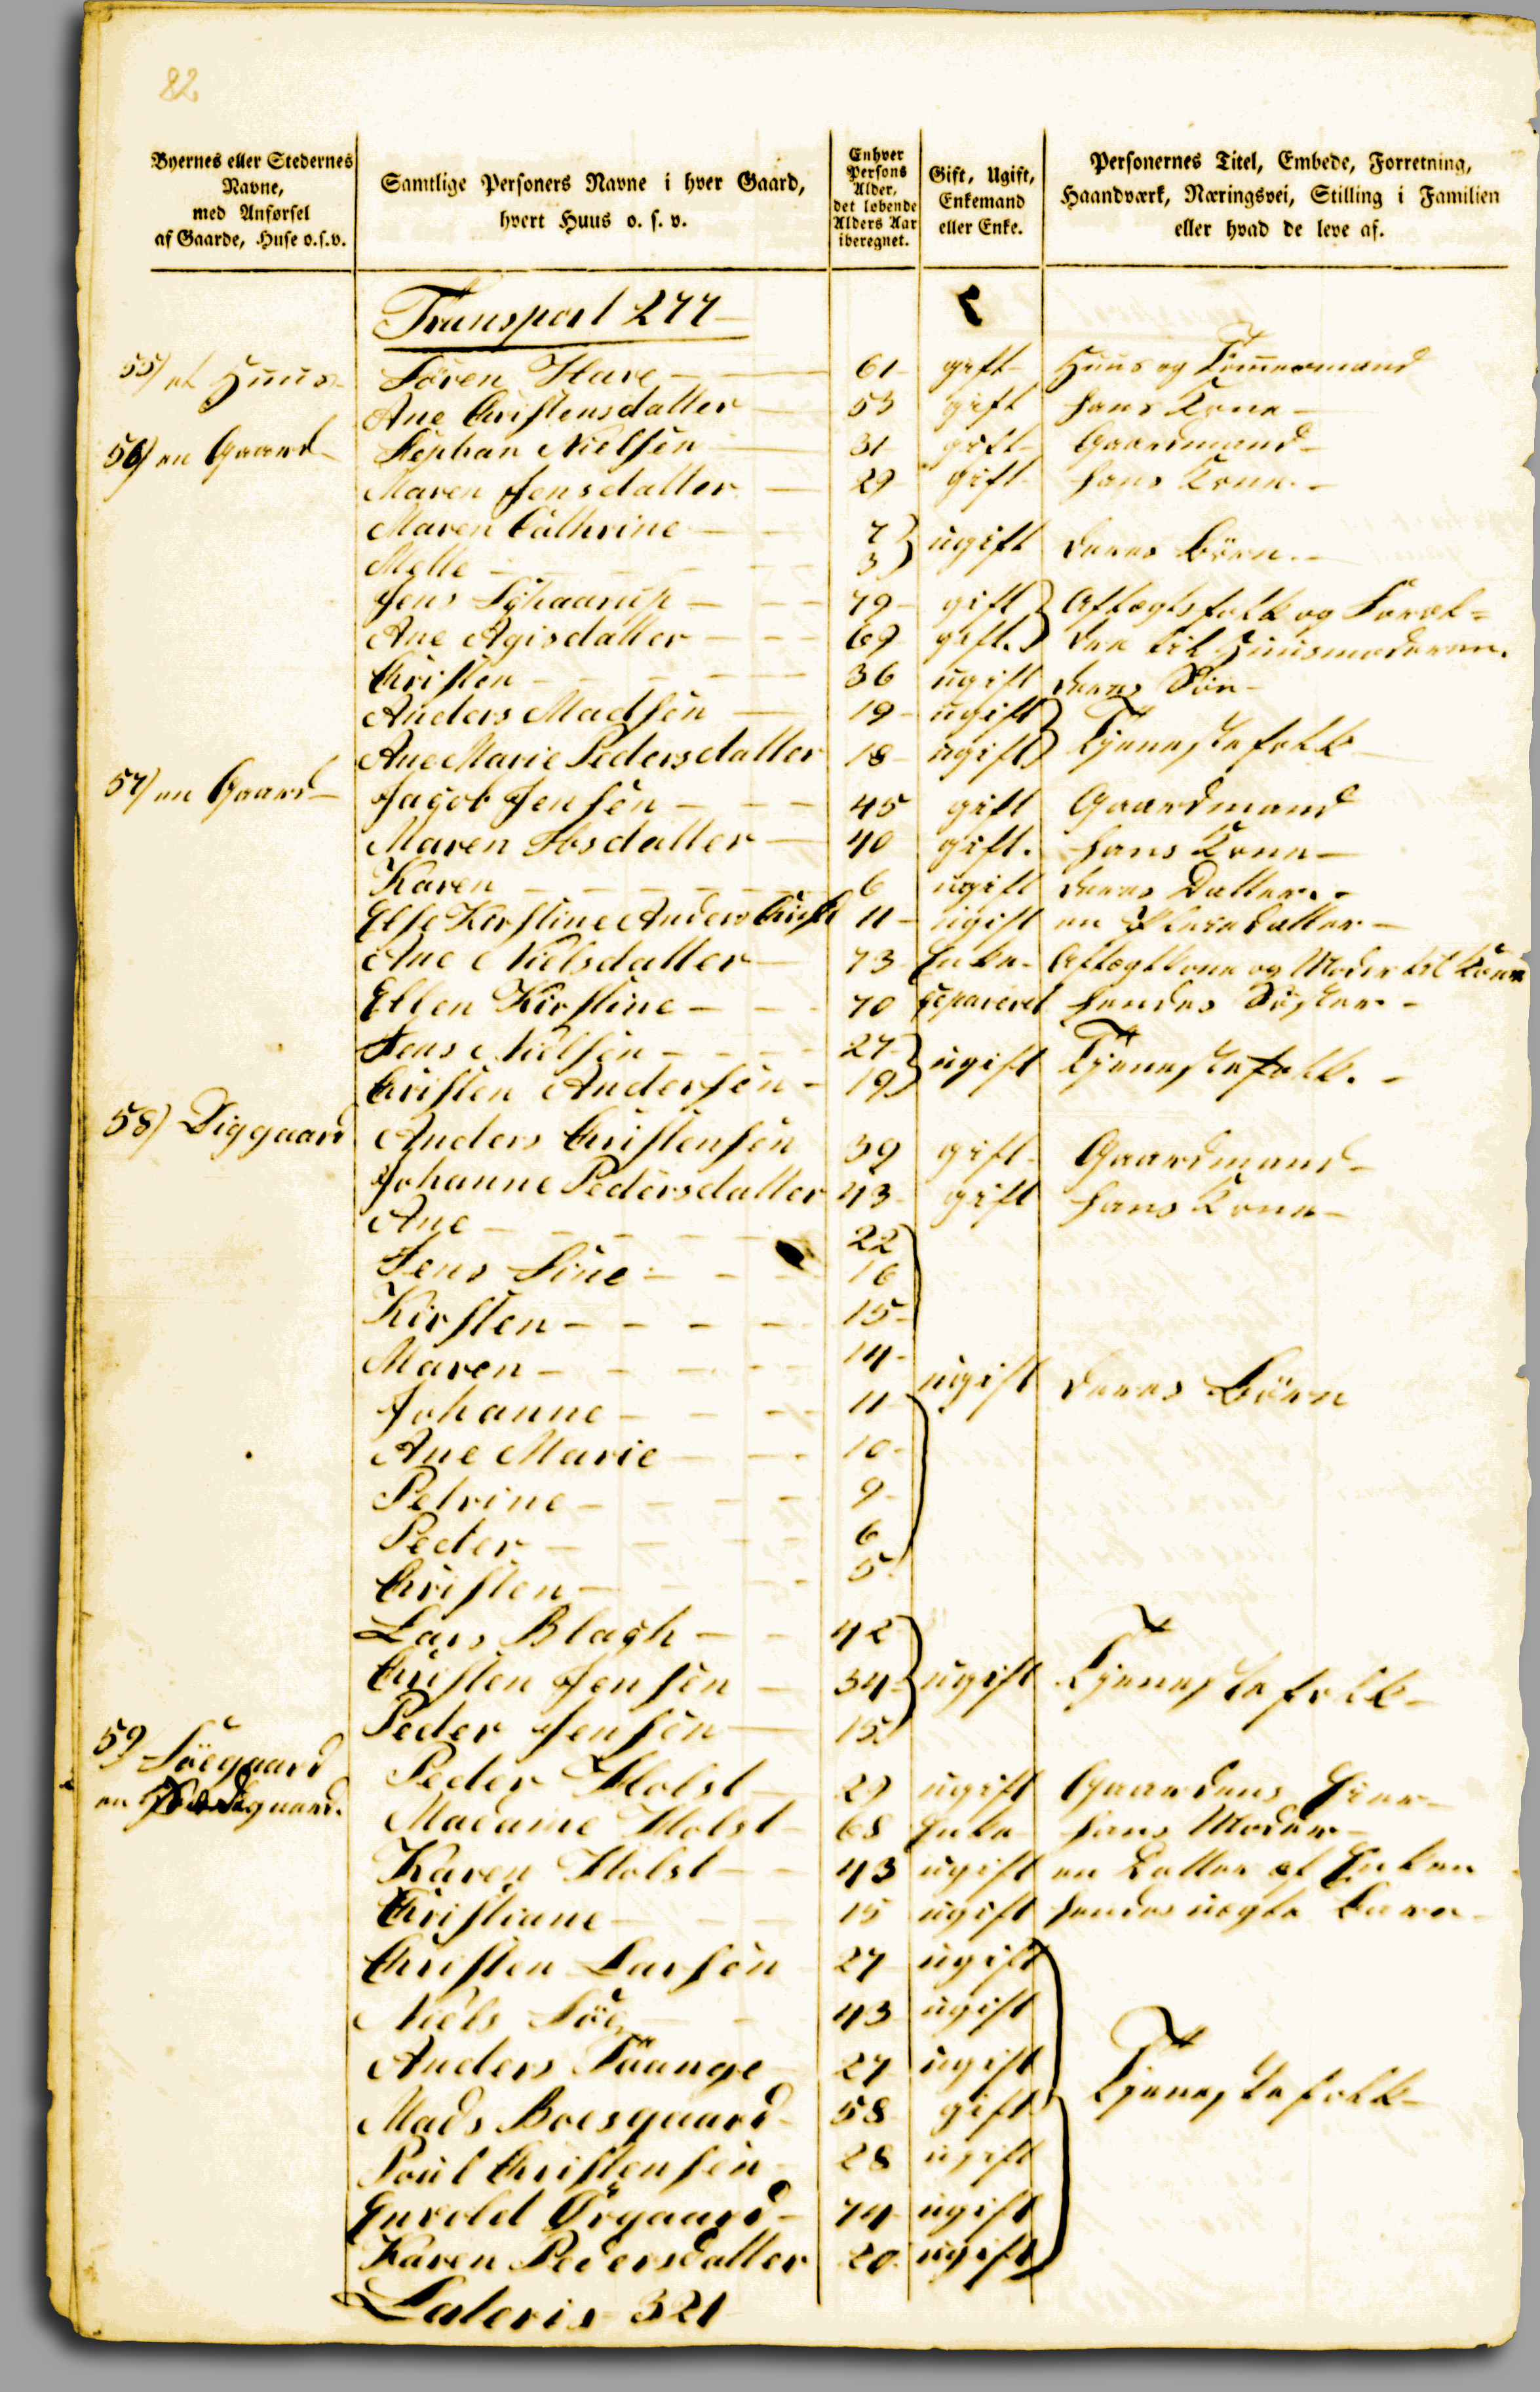 82
Byernes eller Stedernes Navne, med Anførsel af Gaarde, Huse o.s.v.
Samtlige Personers Navne i hver Gaard, hvert Huus o. s. v.
Enhver Persons Alder, det løbende Alders Aar iberegnet.
Gift, Ugift, Enkemand eller Enke.
Personernes Titel, Embede, Forretning, Haandværk, Næringsvei, Stilling i Familien eller hvad de leve af.
Transport 277
55) et Huus Sören Hare 61 gift Huus og Tömmermand
Ane Christensdatter 53 gift hans Kone
56) en Gaard Stephan Nielsen 31 gift Gaardmand
Maren Jensdatter 29 gift hans Kone
Maren Cathrine 7 ugift deres Börn
Mette 3
Jens 79 gift Aftægtsfolk og Foræl=
Ane Agisdatter 69 gift dre til Huusmoderen.
Christen 36 ugift deres Sön
Anders Madsen 19 ugift Tjenestefolk
Ane Marie Pedersdatter 18 ugift
57) en Gaard Jacob Jensen 45 gift Gaardmand
Maren Ibsdatter 40 gift. hans Kone
Karen 6 ugift deres Datter
Else Kirstine Anders 11 ugift en Pleiedatter
Ane Nielsdatter 73 Enke Aftægtkone og Moder til Konen
Ellen Kirstine 70 separeret hendes Söster
Jens Nielsen 27 ugift Tjenestefolk.
Christen Andersen 19
58) Diggaard Anders Christensen 39 gift Gaardmand
Johanne Pedersdatter 43 gift hans Kone
Ane 22
Jens Sine 16
Kirsten 15
Maren 14
ugift deres Börn
Johanne 11
Ane Marie 10
Petrine 9
Peder 6
Christen 5
Lars Blach 42
Christen Jensen 34 ugift Tjenestefolk
Peder Jensen 15
59) Söegaard Peder Holst 29 ugift Gaardens Eier
en Madame Holst 68 Enke hans Moder
Karen Holst 43 ugift en Datter af Enken
Christiane 15 ugift hendes uægte Barn
Christen Larsen 27 ugift
Niels Söe 43 ugift
Anders Taange 27 ugift
Tjenestefolk
Mads Boesgaard 58 gift
Poul Christensen 28 ugift
Envold Örgaard 74 ugift
Karen Pedersdatter 20 ugift
Lateris 321